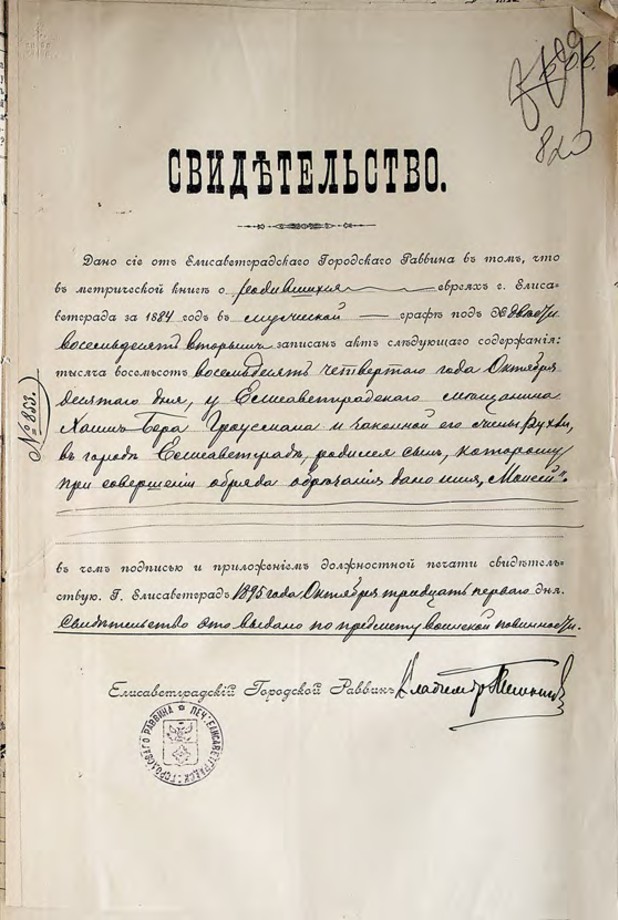 820
СВИДѢТЕЛЬСТВО.
Дано сіе отъ Елисаветградскаго Городскаго Раввина въ томъ, что
въ метрической книгѣ о родившихся евреяхъ г. Елиса-
ветграда за 1884 годъ въ мужеской графѣ подъ № двѣсти
восемьдесятъ вторымъ записанъ актъ слѣдующаго содержанія:
тысяча восемьсотъ восемьдесятъ четвертаго года Октября
десятаго дня, у Елисаветградскаго мѣщанина
Хаимъ Бера Гроусмана и законной его жены Рухли,
въ городѣ Елисаветградѣ, родился сынъ, которому
при совершеніи обряда обрѣзанія дано имя, "Моисей".
№ 853.
въ чемъ подписью и приложеніемъ должностной печати свидѣтель-
ствую. Г. Елисаветградъ 1895 года Октября тридцать перваго дня.
Свидѣтельство это выдано по предмету воинской повинности.
Елисаветградскій Городской Раввинъ Владимиръ
ПЕЧ. ЕЛИСАВЕТГРАДСК. ГОРОДОВАГО РАВВИНА